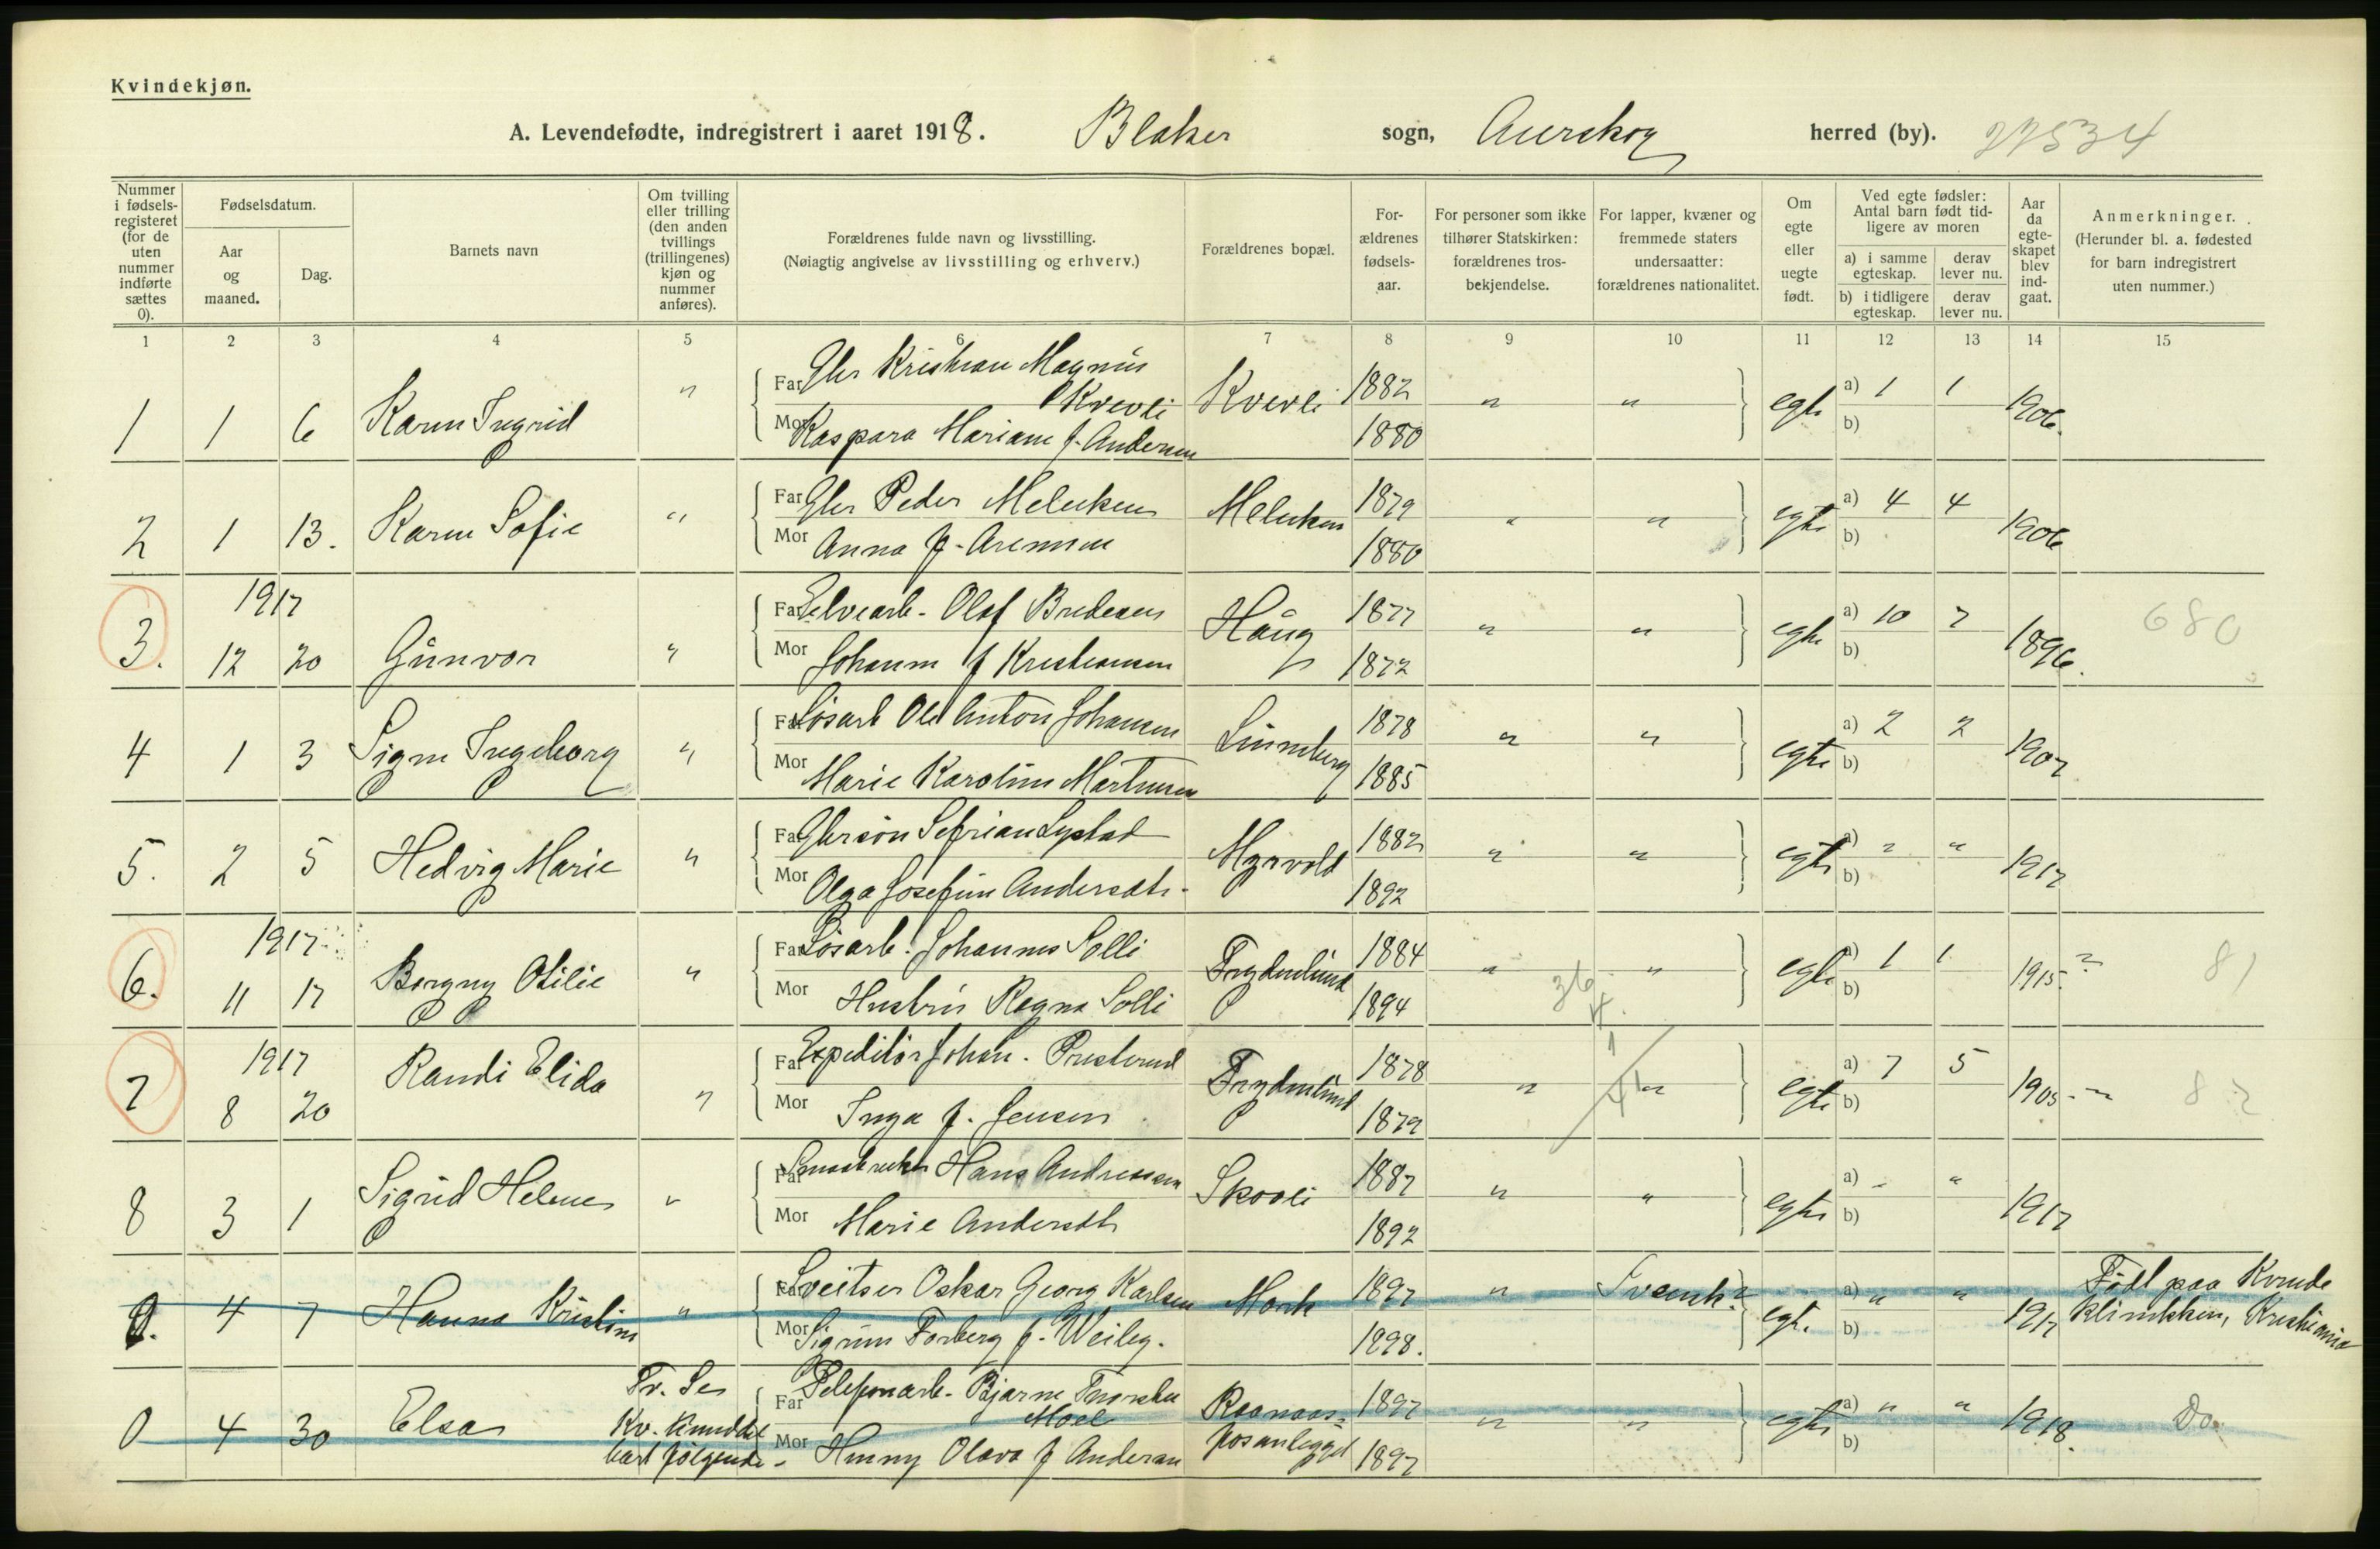 Kvindekjøn.
A. Levendefødte, indregistrert i aaret 1918. Blaker sogn, Aurskog herred (by). 27534
Nummer i fødsels-registeret (for de uten nummer indførte sættes 0).
Fødselsdatum.
Aar og maaned.
Dag.
Barnets navn
Om tvilling eller trilling (den anden tvillings (trillingenes) kjøn og nummer anføres).
Forældrenes fulde navn og livsstilling.
(Nøiagtig angivelse av livsstilling og erhverv.)
Forældrenes bopæl.
For-ældrenes fødsels-aar.
For personer som ikke tilhører Statskirken: forældrenes tros-bekjendelse.
For lapper, kvæner og fremmede staters undersaatter: forældrenes nationalitet.
Om egte eller uegte født.
Ved egte fødsler: Antal barn født tid-ligere av moren
a) i samme egteskap.
derav lever nu.
b) i tidligere egteskap.
derav lever nu.
Aar da egte-skapet blev ind-gaat.
Anmerkninger.
(Herunder bl. a. fødested for barn indregistrert uten nummer.)
1 2 3 4 5 6 7 8 9 10 11 12 13 14 15
1 1 6 Karen Ingrid " Far Gbr Kristian Magnus Kvevli Kvevli 1882 " " egte a) 1 1 1906.
Mor Kaspara Mariane f. Andersen 1880 b)
2 1 13. Karen Sofie " Far Gbr Peder Melecken 1879 " " egte a) 4 4 1906
Mor Anna f. Arnesen 1880 b)
1917
3. 12 20 Gunvor " Far Elvearb. Olaf Bredesen Haug 1877 " " egte a) 10 7 1896. 680
Mor Johanne f Kristiansen 1872 b)
4 1 3 Signe Ingeborg " Far Løsarb Ole Anton Johansen 1878 " " egte a) 2 2 1907
Mor Marie Karoline Martinsen 1885 b)
5. 2 5 Hedvig Marie " Far Gbrsøn Sefrian Lystad Myrvold 1882 " " egte a) " " 1917
Mor Olga Josefine Andersdtr. 1892 b)
1917
6. 11 17 Borgny Otilie " Far Løsarb. Johannes Solli Frydenlund 1884 " " egte a) 1 1 1915 ? 81
Mor Hustru Ragna Solli 1894 b)
1917
7 8 20 Randi Elida " Far Expeditør Johan. Presterud Frydenlund 1878 " " egte a) 7 5 1905 82
Mor Inga f. Jensen 1879 b)
8 3 1 Sigrid Helene " Far Smaabruker Hans Andreassen Skovli 1887 " " egte a) " " 1917
Mor Marie Andersdtr 1892 b)
0. 4 7 Hanna Kristine " Far Sveitser Oskar Georg Karlsen Mork 1897 " Svensk? egte. a) " " 1917 Født paa Kvinde
Mor Sigrun Forberg f. 1898. b) klinikken, Kristiania
0 4 30 Elsa Tv. Se Kv. følgende. Far Telefonarb. Bjarne Moel Raanaas-fosanlegget 1897 " " egte a) " " 1918. Do.
Mor Olava f Andersen 1897 b)